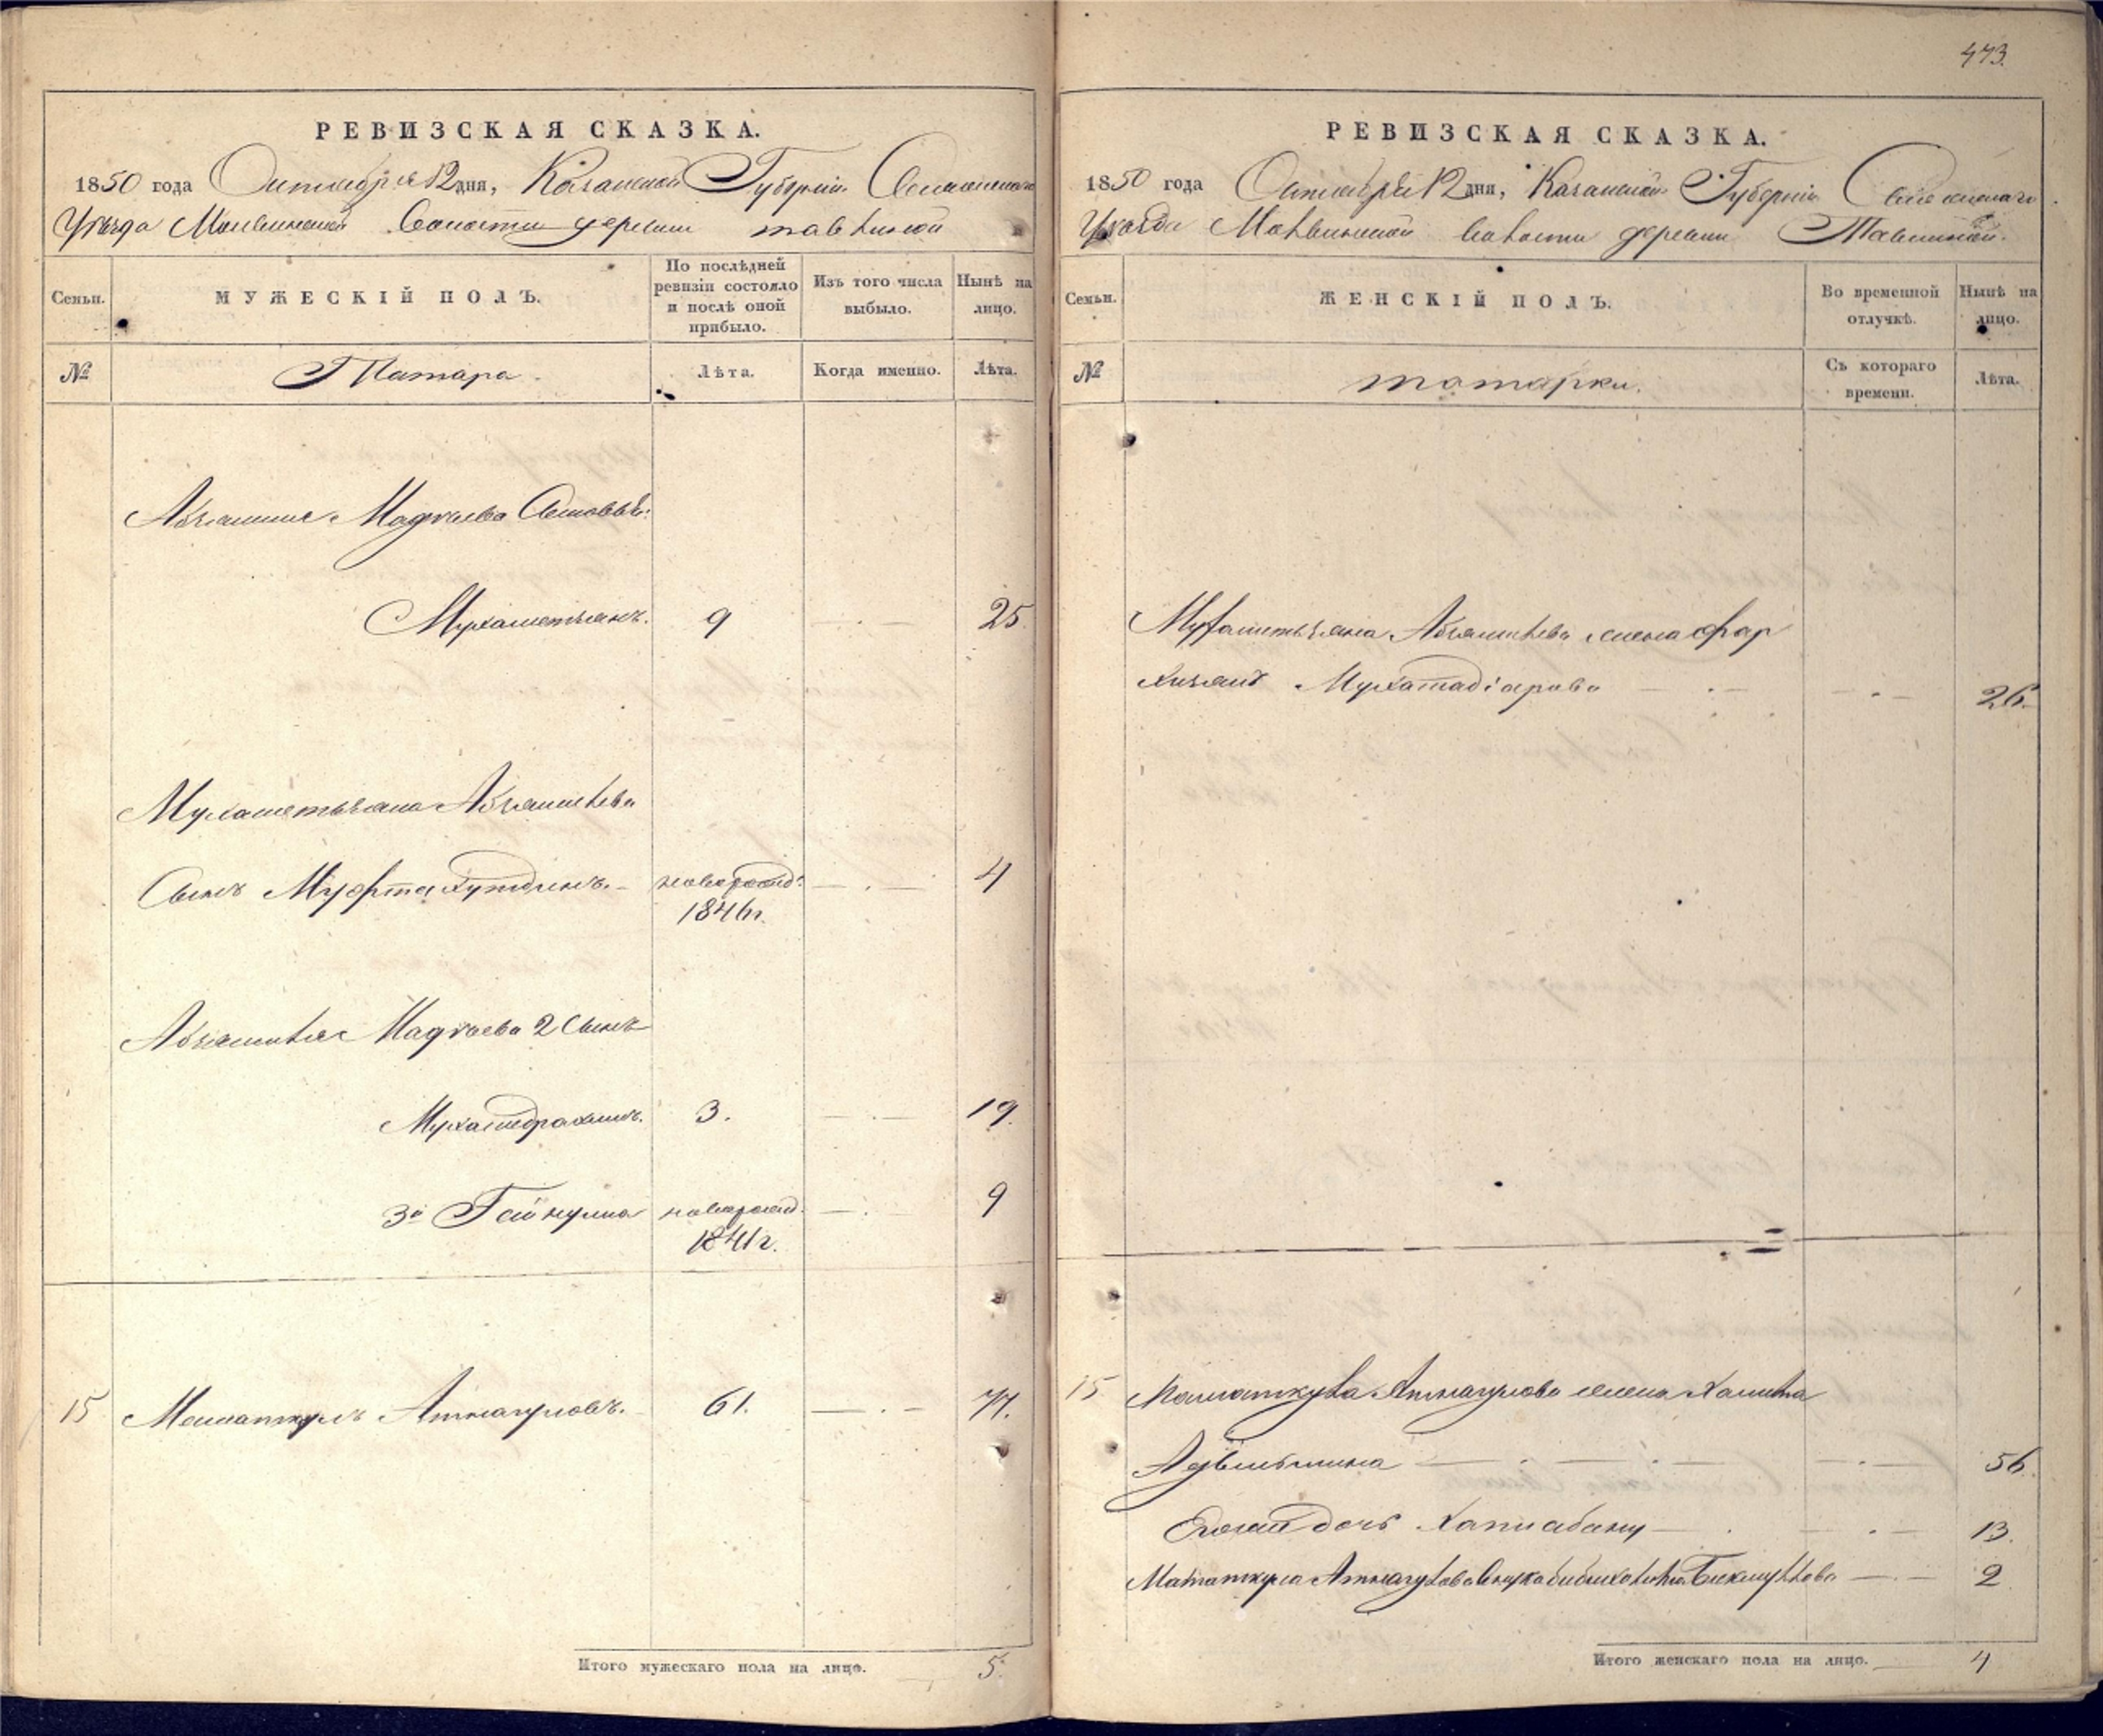 473.
РЕВИЗСКАЯ СКАЗКА.
1850 года Октября 12 дня, Казанской Губернiи Свiяжскаго
Уѣзда Молвинской Волости деревни Тавлиной
Семьи.
МУЖЕСКІЙ ПОЛЪ.
По послѣдней ревизіи состояло и послѣ оной прибыло.
Изъ того числа выбыло.
Нынѣ на лицо.
№
Татара
Лѣта.
Когда именно.
Лѣта.
Абзялиля Мадѣева Сыновья:
Мухаметзянъ. 9 — 25.
Мухаметьзяна Абзялилева
Сынъ Муфтахутдинъ. новорожд: — . — 4
1846г.
Абзялиля Мадѣева 2 Сынъ
Мухамедрахимъ. 3. — . — 19.
3й Гайнулла новорожд. — . — 9
1841г.
15 Маматкулъ Атнагуловъ. 61. — . — 77.
Итого мужескаго пола на лицо. 5.
РЕВИЗСКАЯ СКАЗКА.
1850 года Октября 12 дня, Казанской Губернiи Свiяжскаго
Уѣзда Молвинской волости деревни Тавлиной.
Семьи.
ЖЕНСКІЙ ПОЛЪ.
Во временной отлучкѣ.
Нынѣ на лицо.
№
татарки.
Съ котораго времени.
Лѣта.
Мухаметьзяна Абзялилева жена Фар
хизянд Мухамадiарова — . — — . — 26.
15 Маматкула Атнагулова жена Халила
— . — . — — . — 56.
дочь Хаписабану — . — . 13.
Маматкула Атнагулова Внука Биккулова — . — 2
Итого женскаго пола на лицо. — 4